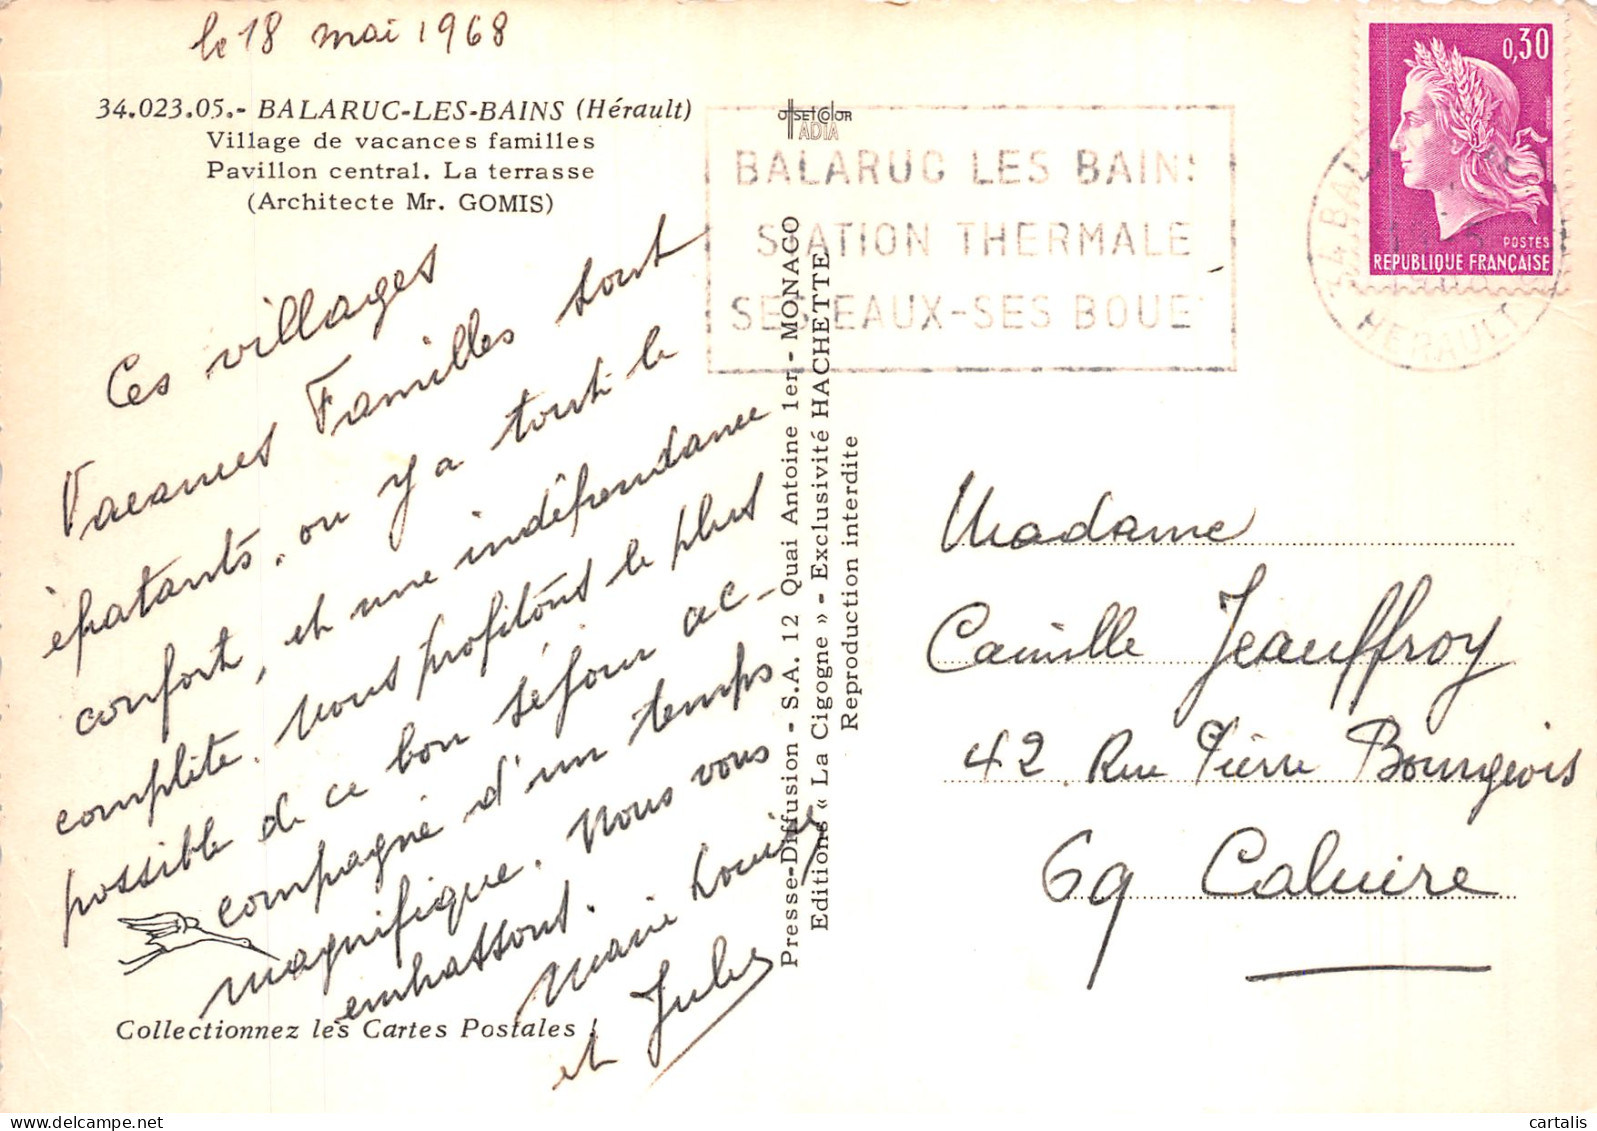 le 18 mai 1968
34.023.05.- BALARUC-LES-BAINS (Hérault)
Village de vacances familles
Pavillon central. La terrasse
(Architecte Mr. GOMIS)
Ces villages
Vacances Familles sont
épatants. on y a tout le
confort, et une indépendance
complète. Nous profitons le plus
possible de ce bon séjour ac-
compagné d'un temps
magnifique. Nous vous
embrassons.
Marie Louise
et Jules
Collectionnez les Cartes Postales !
OFFSET COLOR
ADIA
BALARUC LES BAINS
STATION THERMALE
SES EAUX-SES BOUE
Presse-Diffusion - S.A. 12 Quai Antoine 1er - MONACO
Editions « La Cigogne » - Exclusivité HACHETTE
Reproduction interdite
0,30
POSTES
REPUBLIQUE FRANÇAISE
34 BALARUC
HERAULT
Madame
Camille Jeauffroy
42 Rue Pierre Bourgeois
69 Caluire
cartalis